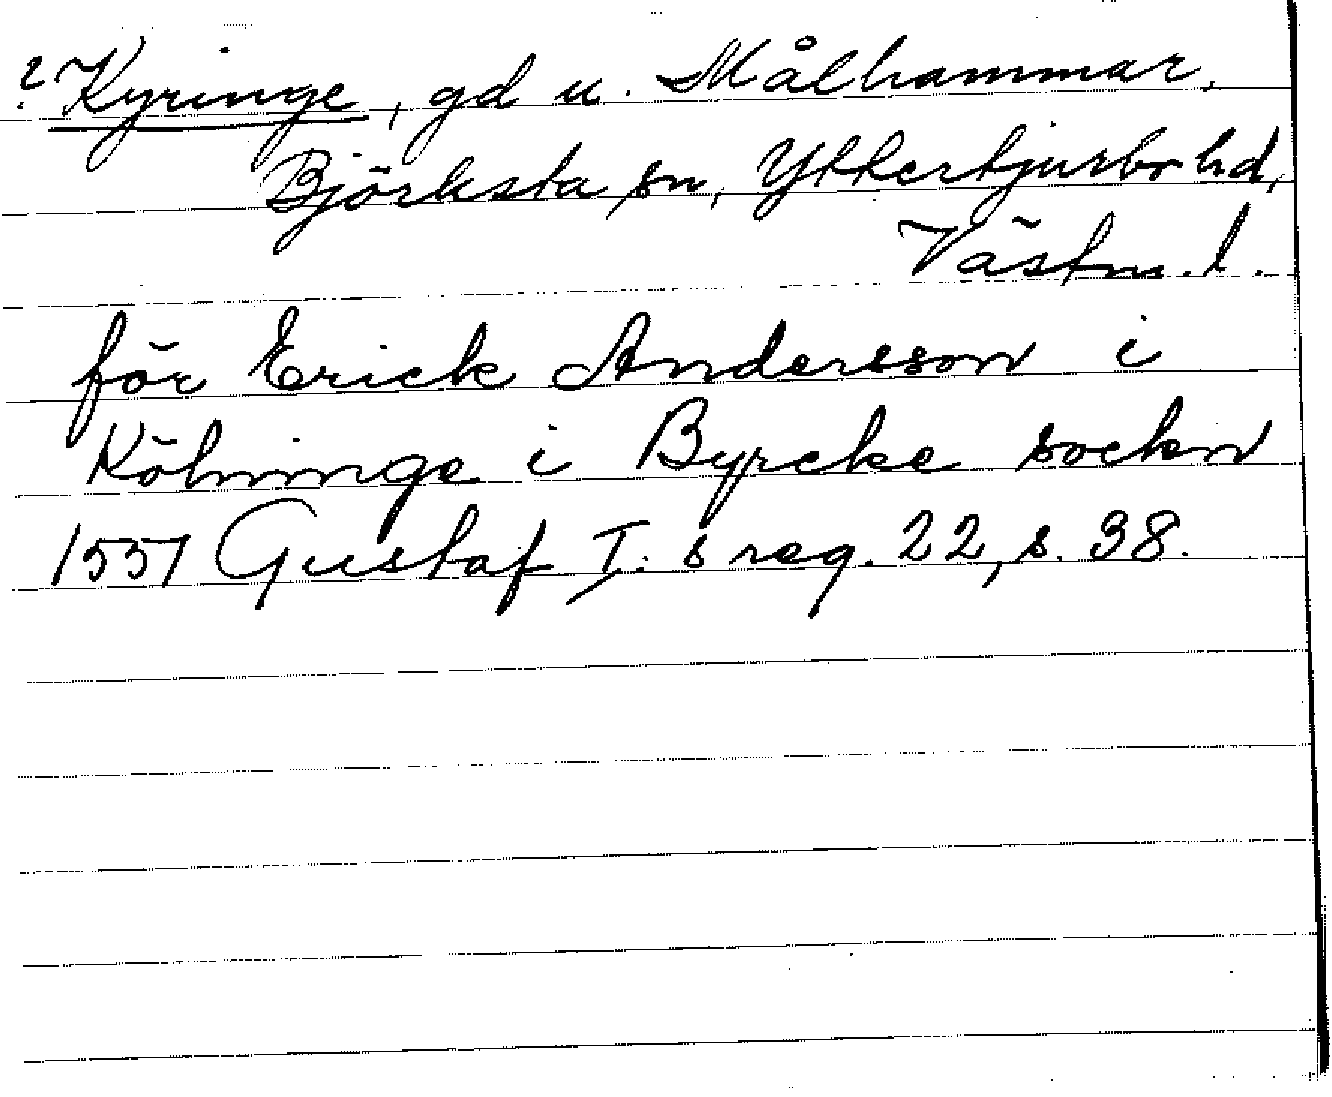 ? Kyringe, gd u. Målhammar,
Björksta sn, Yttertjurbo hd,
Västm. l.
för Erick Andersson i
Kölninge i Byrcke sockn
1551 Gustaf I:s reg. 22, s. 38.